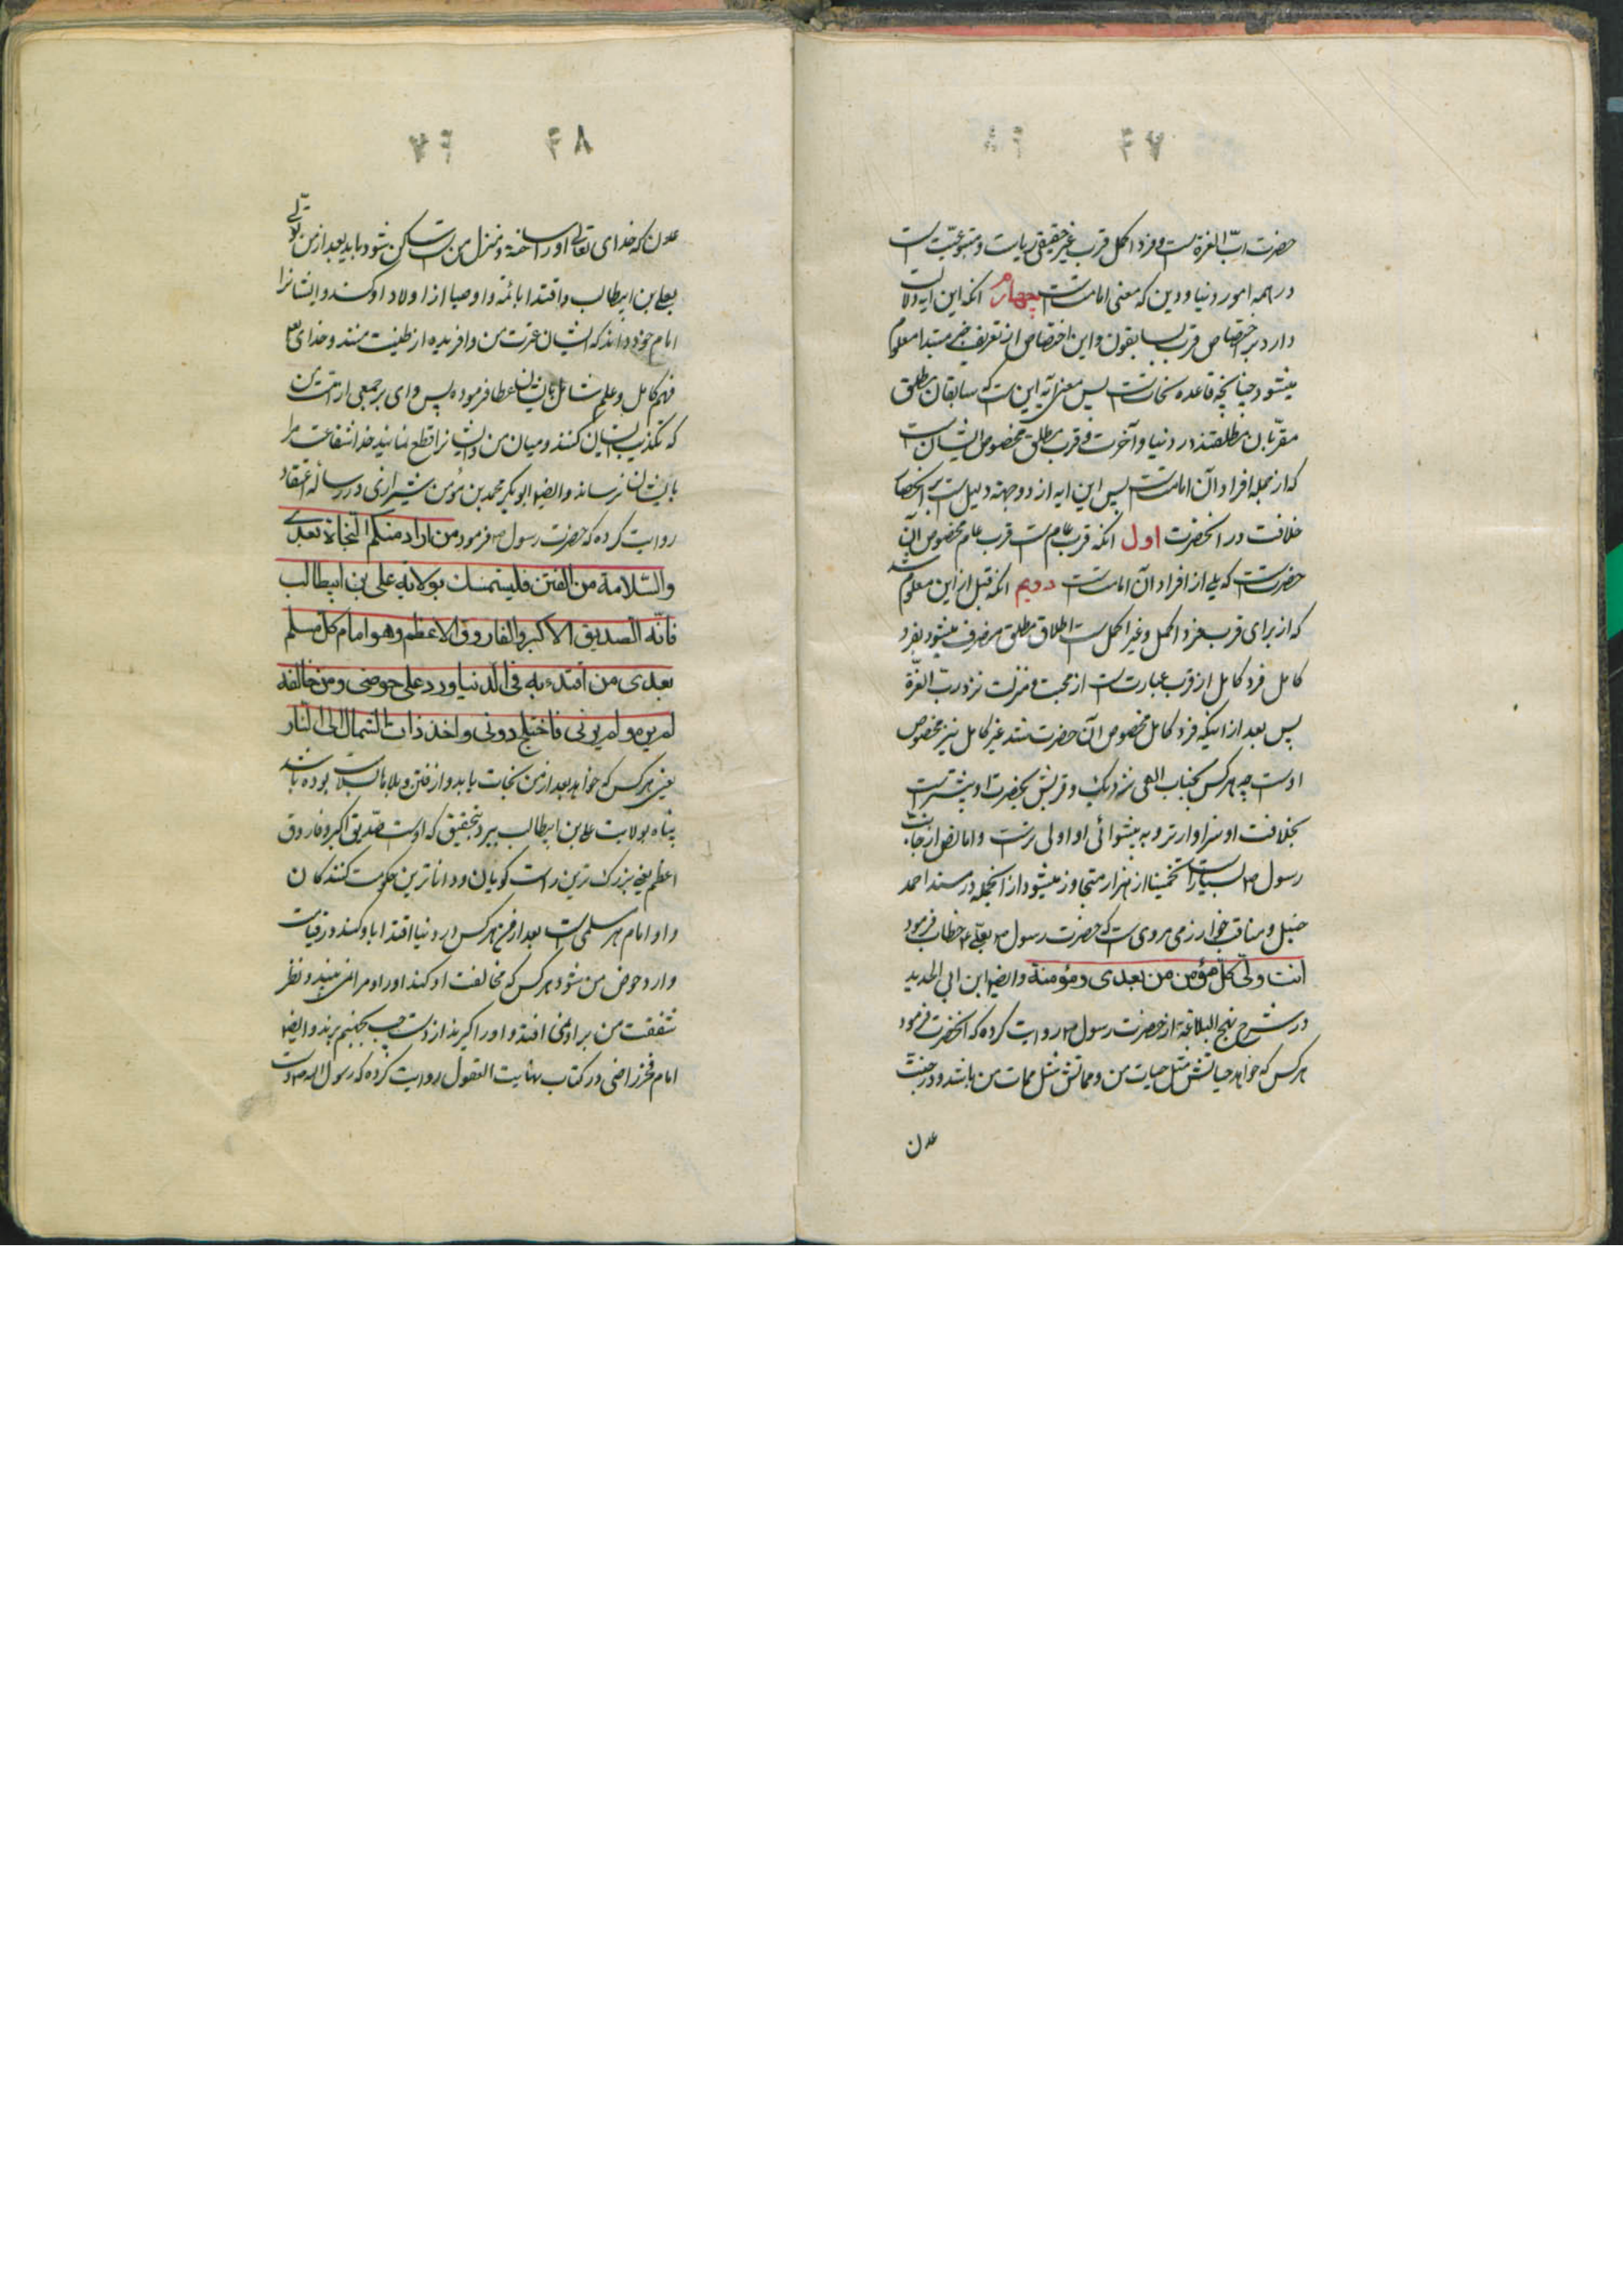 ۴۷
حضرت ربّ العزة است و فرد اکمل قرب غیر حقیقی ریاست و متبوعیّت است
در همه امور دنیا و دین که معنی امامت است چهارم آنکه این آیه دلالت
دارد بر اختصاص قرب بسابقون و این اختصاص از تعریف خبر مبتدا معلوم
میشود چنانچه قاعده نحات است پس معنی آیه این است که سابقان مطلق
مقرّبان مطلقند در دنیا و آخرت و قرب مطلق مخصوص ایشان است
که از جمله افراد آن امامت است پس این ایه از دو جهة دلیل است بر انحصار
خلافت در انحضرت اول انکه قرب عام است قرب عام مخصوص آن
حضرتست که یکی از افراد آن امامت است دویم انکه قبل از این معلوم شد
که از برای قرب فرد اکمل و غیر اکمل است اطلاق مطلق منصرف میشود بفرد
کامل فرد کامل از قرب عبارت است از محبت و منزلت نزد ربّ العزّة
پس بعد از اینکه فرد کامل مخصوص آن حضرت شد غیر کامل نیز مخصوص
اوست چه هر کس بجناب الهی نزدیک و قربش بحضرت او بیشتر است
بخلافت او سزاوارتر و به پیشوائی او اولی است و اما نص از جانب
رسول ص بسیار است تخمینا از هزار متجاوز میشود از انجمله در مسند احمد
حنبل و مناقب خوارزمی مروی است که حضرت رسول ص بعلی ع خطاب فرمود
انت ولیّ کلّ مؤمن من بعدی و مؤمنة و ایضا ابن ابی الحدید
در شرح نهج البلاغه از حضرت رسول ص روایت کرده که انحضرت فرمود
هر کس که خواهد حیاتش مثل حیات من و مماتش مثل ممات من باشد و در جنت
عدن
۴۸
عدن که خدای تعالی او را ساخته و منزل من است ساکن شود باید بعد از من تولّی
بعلی بن ابیطالب و اقتدا بائمه و اوصیا از اولاد او کند و ایشانرا
امام خود داند که ایشان عترت من و افریده از طینت منند و خدای
فهم کامل و علم شامل بایشان عطا فرموده پس وای بر جمعی از امت من
که تکذیب ایشان کنند و میان من و ایشانرا قطع نمایند خدا شفاعت مرا
بایشان نرساند و ایضا ابو بکر محمد بن مؤمن شیرازی در رساله اعتقاد
روایت کرده که حضرت رسول ص فرمود من اراد منکم النجاة بعدی
والسّلامة من الفتن فلیستمسك بولایة علی بن ابیطالب
فانّه الصدیق الاکبر والفاروق الاعظم وهو امام کل مسلم
بعدی من اقتدء به فی الدنیا ورد علی حوضی ومن خالفه
لم یره ولم یرنی فاختلج دونی واخذ ذات الشمال الی النار
یعنی هر کس که خواهد بعد از من نجات یابد و از فتن و بلاها بسلامت بوده باشد
پناه بولایت علی بن ابیطالب ببرد بتحقیق که اوست صدّیق اکبر و فاروق
اعظم یعنی بزرگ ترین راست کویان و داناترین حکومت کنندکان
و او امام هر مسلمی است بعد از من هر کس در دنیا اقتدا باو کند در قیامت
وارد حوض من شود و هر کس که مخالفت او کند او را و مرا نمی بیند و نظر
شفقت من بر او نمی افتد و او را کیرند از دست چپ بجهنم برند و ایضا
امام فخر رازی در کتاب نهایت العقول روایت کرده که رسول الله ص